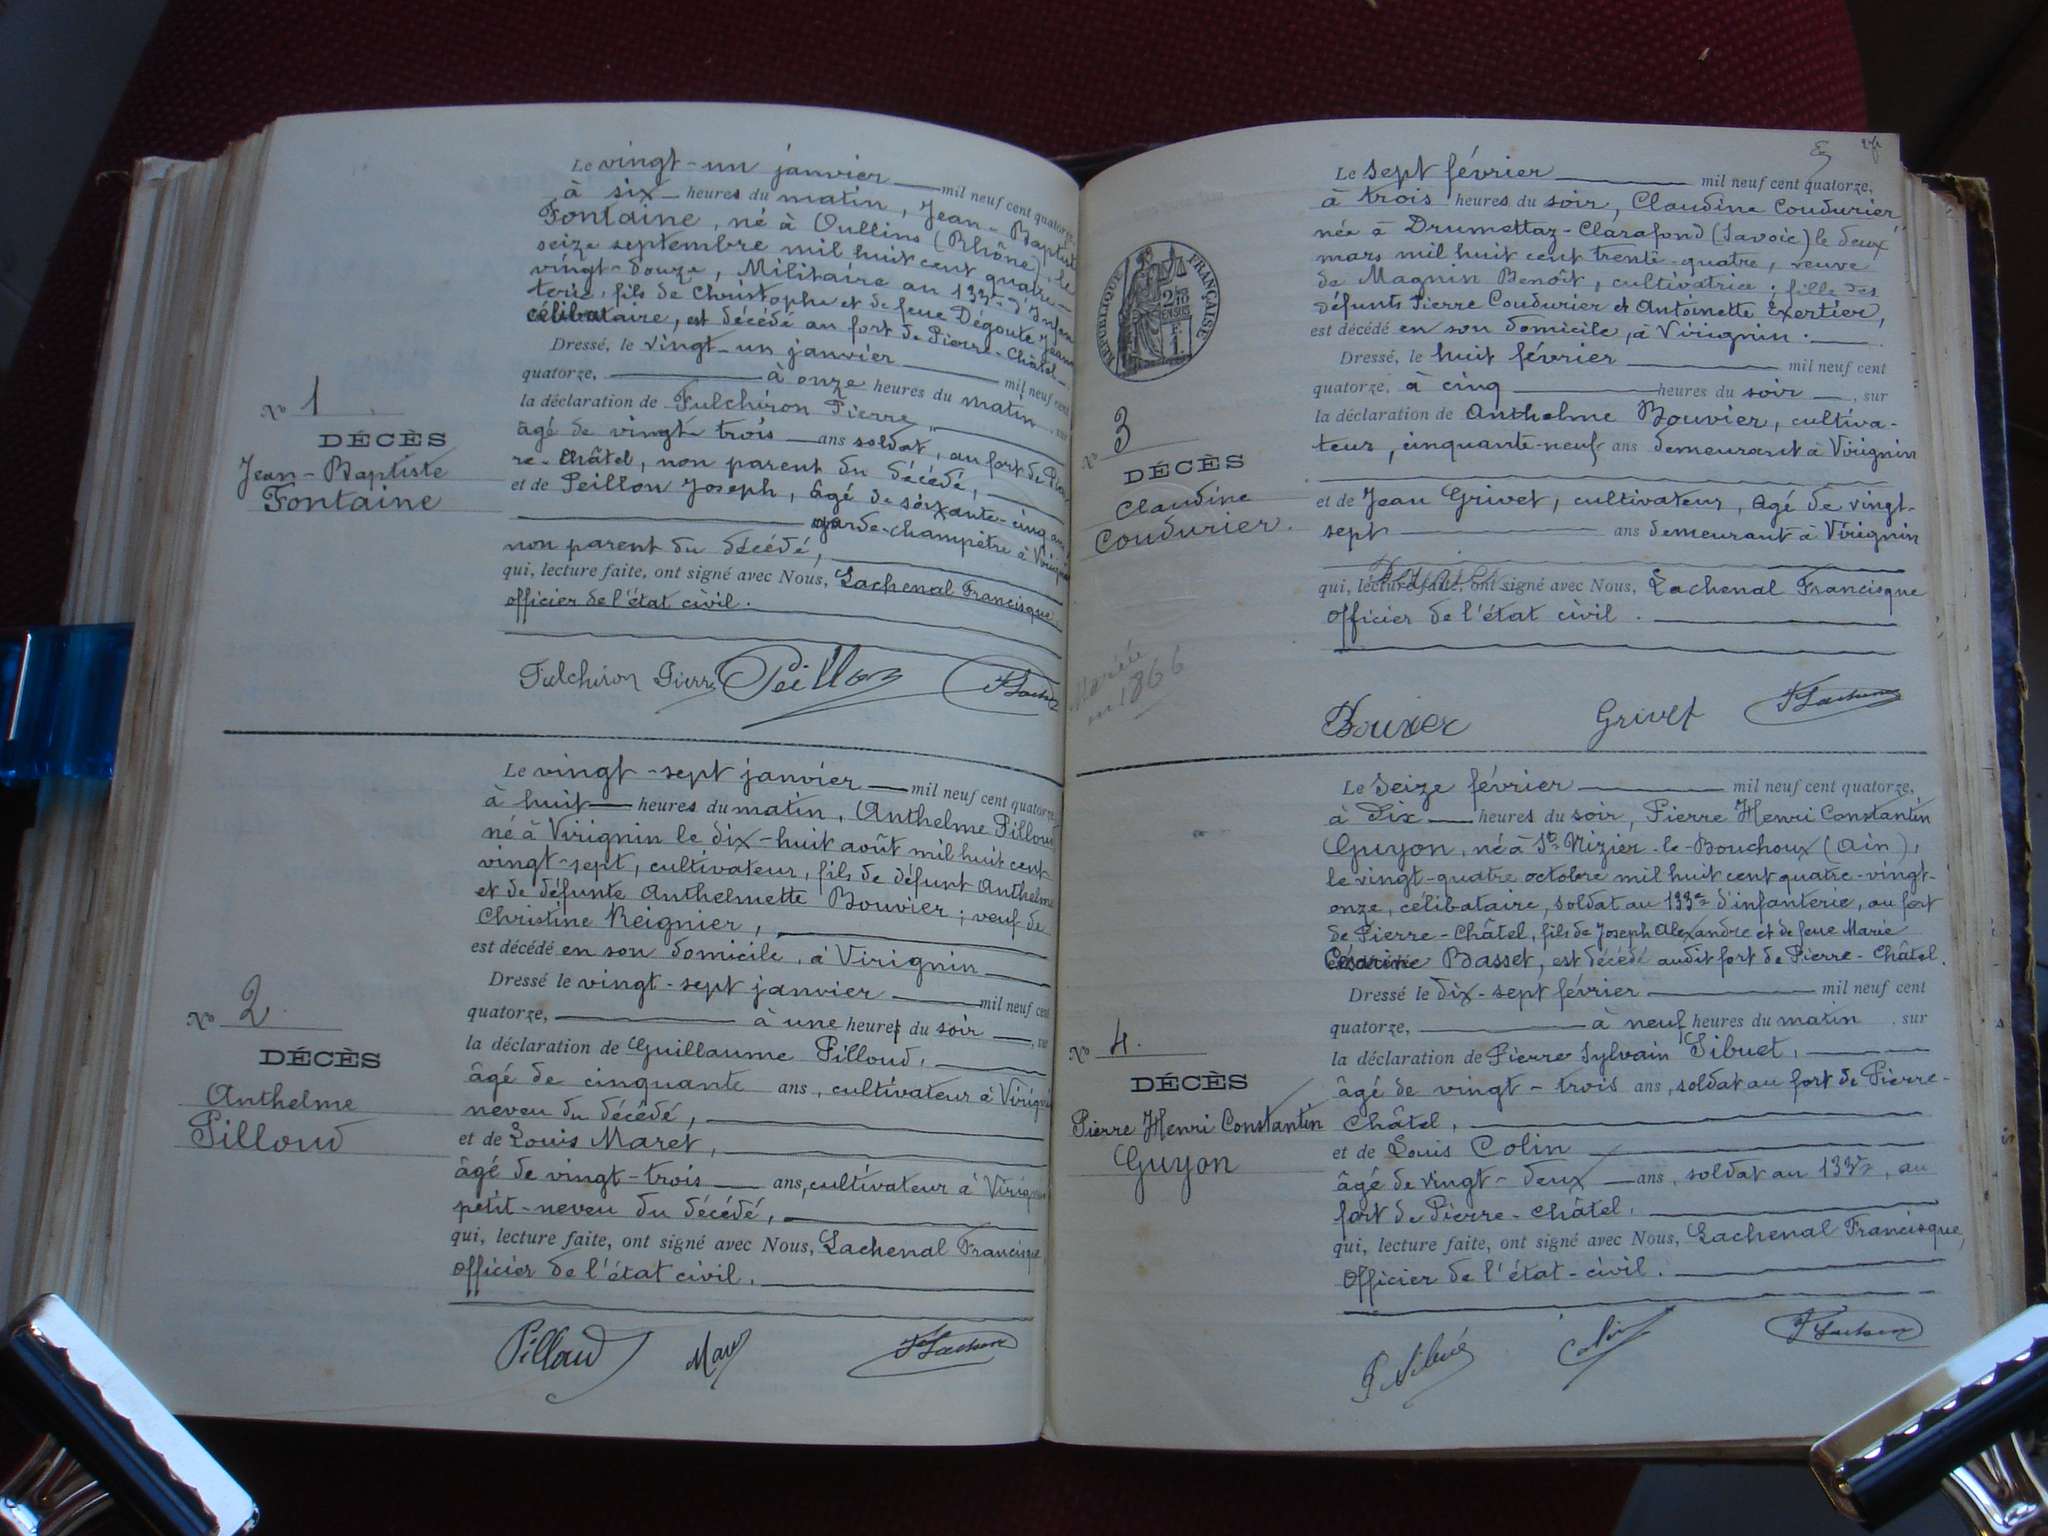 Le vingt-un janvier mil neuf cent quatorze,
à six heures du matin, Jean-Baptiste
Fontaine, né à Oullins (Rhône), le
seize septembre mil huit cent quatre-
vingt-douze, Militaire au 133e d'Infan
terie, fils de Christophe et de feue Dégoute Jeanne
célibataire, est décédé au fort de Pierre-Châtel
Dressé, le vingt-un janvier mil neuf cent
quatorze, à onze heures du matin, sur
la déclaration de Fulchiron Pierre,
âgé de vingt-trois ans soldat, au fort de Pier
re-Châtel, non parent du décédé,
et de Peillon Joseph, âgé de soixante-cinq ans
garde-champêtre à Virignin
non parent du décédé,
qui, lecture faite, ont signé avec Nous, Lachenal Francisque
officier de l'état civil.
Fulchiron Pierre Peillon
No 1
DÉCÈS
Jean-Baptiste
Fontaine
Le vingt-sept janvier mil neuf cent quatorze,
à huit heures du matin, Anthelme Pilloud
né à Virignin le dix-huit août mil huit cent
vingt-sept, cultivateur, fils de défunt Anthelme
et de défunte Anthelmette Bouvier; veuf de
Christine Reignier,
est décédé en son domicile, à Virignin
Dressé le vingt-sept janvier mil neuf cent
quatorze, à une heures du soir, sur
la déclaration de Guillaume Pilloud,
âgé de cinquante ans, cultivateur à Virignin
neveu du décédé,
et de Louis Maret,
âgé de vingt-trois ans, cultivateur à Virignin
petit-neveu du décédé,
qui, lecture faite, ont signé avec Nous, Lachenal Francisque
officier de l'état civil.
Pilloud
No 2
DÉCÈS
Anthelme
Pilloud
Le sept février mil neuf cent quatorze,
à trois heures du soir, Claudine Coudurier
née à Drumettaz-Clarafond (Savoie) le deux
mars mil huit cent trente-quatre, veuve
de Magnin Benoît, cultivatrice; fille des
défunts Pierre Coudurier et Antoinette Exertier,
est décédé en son domicile, à Virignin.
Dressé, le huit février mil neuf cent
quatorze, à cinq heures du soir, sur
la déclaration de Anthelme Bouvier, cultiva-
teur, cinquante-neuf ans demeurant à Virignin
et de Jean Grivet, cultivateur, âgé de vingt-
sept ans demeurant à Virignin
qui, lecture faite, ont signé avec Nous, Lachenal Francisque
officier de l'état civil.
Bouvier Grivet
RÉPUBLIQUE FRANÇAISE
No 3
DÉCÈS
Claudine
Coudurier.
Mariée
en 1866
Le seize février mil neuf cent quatorze,
à dix heures du soir, Pierre Henri Constantin
Guyon, né à St Nizier-le-Bouchoux (Ain),
le vingt-quatre octobre mil huit cent quatre-vingt-
onze, célibataire, soldat au 133e d'infanterie, au fort
de Pierre-Châtel, fils de Joseph Alexandre et de feue Marie
Basset, est décédé audit fort de Pierre-Châtel.
Dressé le dix-sept février mil neuf cent
quatorze, à neuf heures du matin, sur
la déclaration de Pierre Sylvain Sibuet,
âgé de vingt-trois ans, soldat au fort de Pierre-
Châtel,
et de Louis Colin
âgé de vingt-deux ans, soldat au 133e, au
fort de Pierre-Châtel.
qui, lecture faite, ont signé avec Nous, Lachenal Francisque,
officier de l'état-civil.
No 4.
DÉCÈS
Pierre Henri Constantin
Guyon